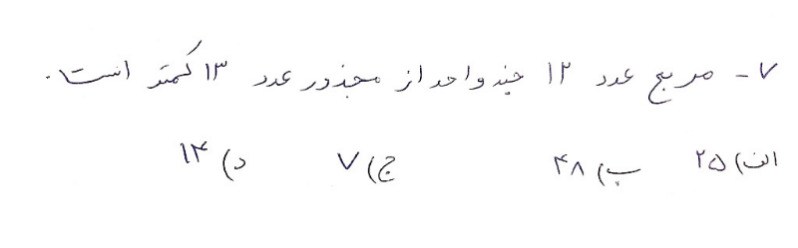 ۷- مربع عدد ۱۲ چند واحد از مجذور عدد ۱۳ کمتر است.
الف) ۲۵ ب) ۴۸ ج) ۷ د) ۱۴